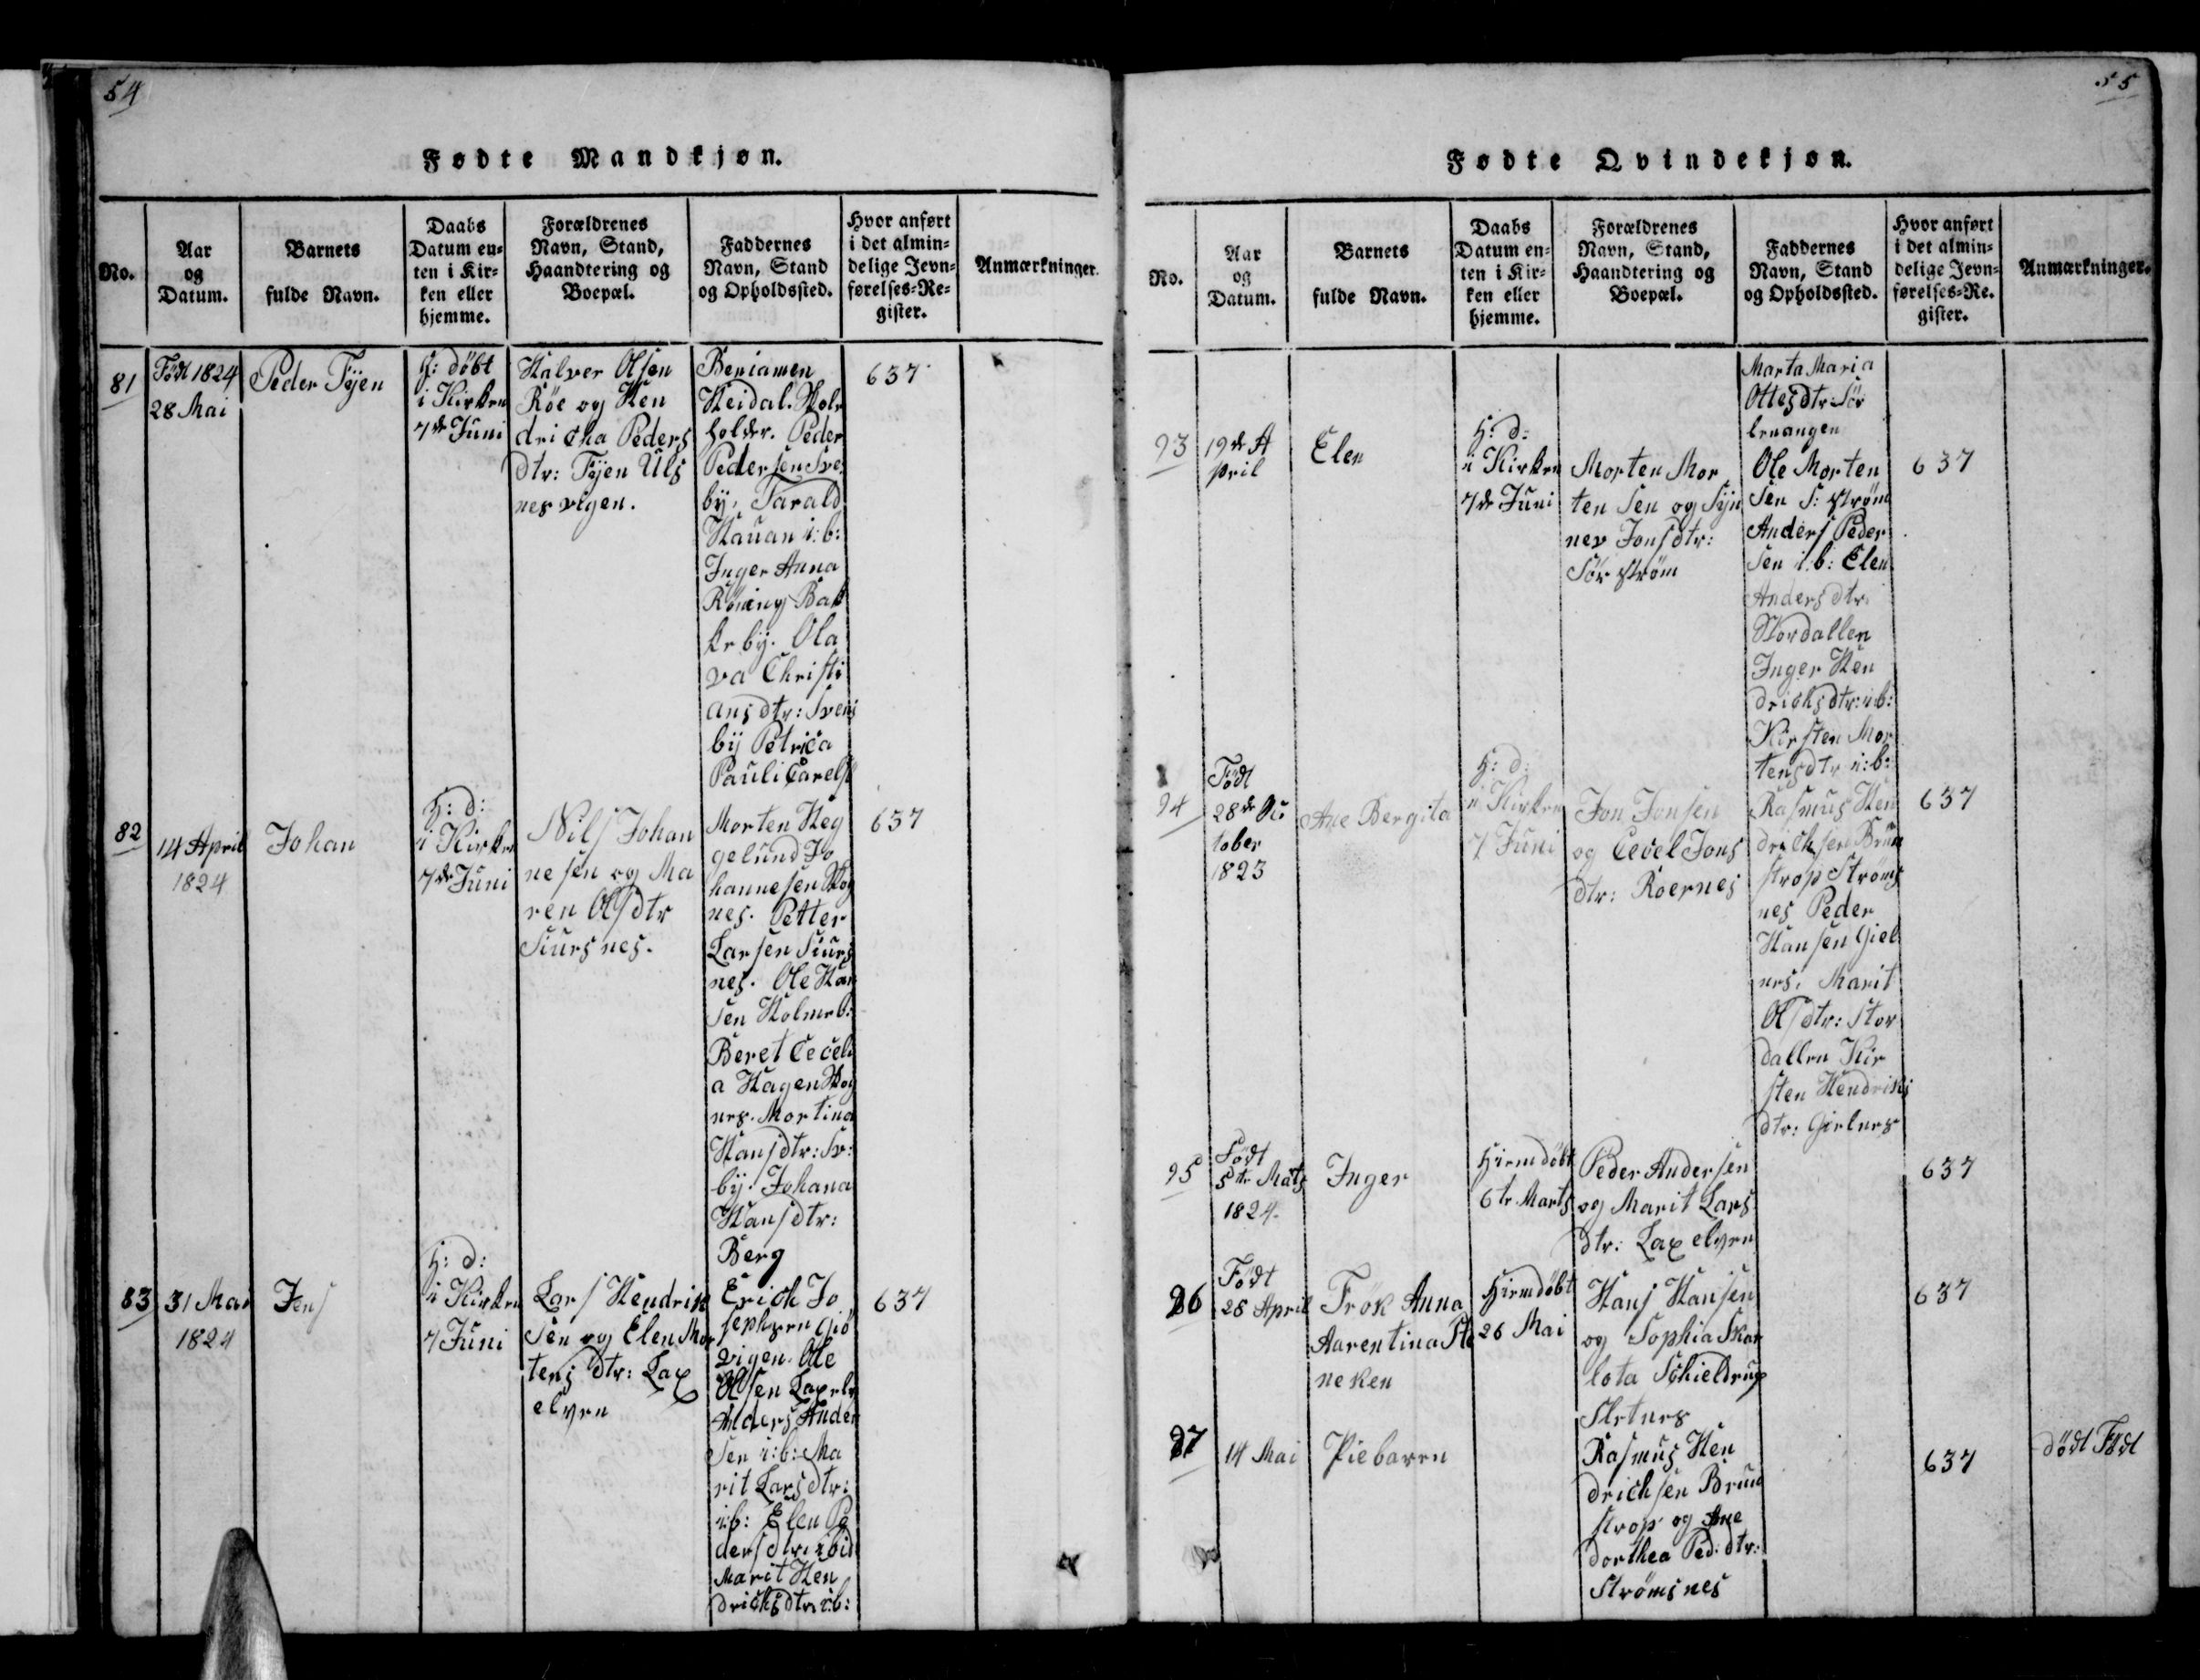 54
Fødte Mandkjøn.
No.
Aar
og
Datum.
Barnets
fulde Navn.
Daabs
Datum en-
ten i Kir-
ken eller
hjemme.
Forældrenes
Navn, Stand,
Haandtering og
Boepæl.
Faddernes
Navn, Stand
og Opholdssted.
Hvor anført
i det almin-
delige Jevn-
førelses-Re-
gister.
Anmærkninger.
81
Födt 1824
28 Mai
Peder Fÿen
H: döbt
i Kirken
7de Juni
Halver Olsen
Röe og Hen
dricha Peders
dtr: Fÿen Uls
nesvigen.
Beniamen
Heidal. Skole
holder. Peder
Pedersen Sve
bÿ. Tarald
Hauan i:b:
Inger Anna
Röning Bak
kebÿ. Ola
va Christi
ansdtr: Svens
bÿ Petrica
Pauli Carels
637
82
14 April
1824
Johan
H: d:
i Kirken
7de Juni
Nils Johan
nesen og Ma
ren Olsdtr
Siursnes.
Morten Heg
gelund Jo
hannesen Skog
nes. Petter
Larsen Siurs
nes. Ole Han
sen Holmeb:
Beret Cecel
a Hagen Skog
nes. Mortina
Hansdtr: Sv:
bÿ. Johana
Hansdtr:
Berg
637
83
31 Mai
1824
Jens
H: d:
i Kirken
7 Juni
Lars Hendrik
sen og Elen Mor
tens dtr: Lax
elven
Erich Jo
sephsen Giö
vigen. Ole
Olsen Laxelv
Anders Ander
sen i:b: Ma
rit Larsdtr:
i:b: Elen Pe
dersdtr: ibid
Marit Hen
drichsdtr: i:b:
637
55
Fødte Qvindekjøn.
No.
Aar
og
Datum.
Barnets
fulde Navn.
Daabs
Datum en-
ten i Kir-
ken eller
hjemme.
Forældrenes
Navn, Stand,
Haandtering og
Boepæl.
Faddernes
Navn, Stand
og Opholdssted.
Hvor anført
i det almin-
delige Jevn-
førelses-Re.
gister.
Anmærkninger.
Marta Maria
Ottesdtr: Sör
lenangen
93
19de A
pril
Elen
H: d:
i Kirken
7de Juni
Morten Mor
tensen og Sÿn
nev Jonsdtr:
Sör ström
Ole Morten
sen S: ström
Anders Peder
sen i.b: Elen
Andersdtr.
Stordallen
Inger Hen
drichsdtr: i:b:
Kirsten Mor
tensdtr i:b:
637
94
Födt
28de
tober
1823
Ane Bergita
H: d:
i Kirken
7 Juni
Jon Jonsen
og Cecel Jons
dtr: Roernes
Rasmus Hen
drichsen Brun
strop Ströms
nes Peder
Hansen Giel
nes. Marit
Olsdtr: Stor
dallen Kir
sten Hendrichs
dtr: Gielnes
637
95
Födt
5te Mats
1824.
Inger
Hiemdöbt
6te Marts
Peder Andersen
og Marit Lars
dtr: Laxelven
637
96
Födt
28 April
Frök Anna
Aarentina Ste
neken
Hiemdöbt
26 Mai
Hans Hansen
og Sophia Skar
lota Schieldrup
Sletnes
637
97
14 Mai
Piebaren
Rasmus Hen
drichsen Brun
strop og Ane
dorthea Ped: dtr:
Strömsnes
637
död Födt